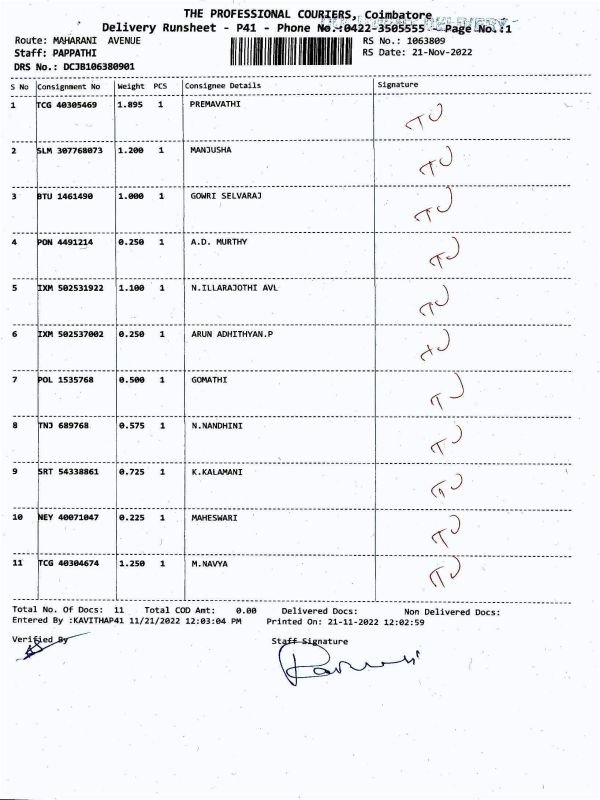 THE PROFESSIONAL COURIERS, Coimbatore
Delivery Runsheet - P41 - Phone No.:0422-3505555 - Page No.:1
Route: MAHARANI AVENUE
RS No.: 1063809
Staff: PAPPATHI
RS Date: 21-Nov-2022
DRS No.: DCJB106380901
S No Consignment No Weight PCS Consignee Details Signature
1 TCG 40305469 1.895 1 PREMAVATHI
2 SLM 307768073 1.200 1 MANJUSHA
3 BTU 1461490 1.000 1 GOWRI SELVARAJ
4 PON 4491214 0.250 1 A.D. MURTHY
5 IXM 502531922 1.100 1 N.ILLARAJOTHI AVL
6 IXM 502537002 0.250 1 ARUN ADHITHYAN.P
7 POL 1535768 0.500 1 GOMATHI
8 TNJ 689768 0.575 1 N.NANDHINI
9 SRT 54338861 0.725 1 K.KALAMANI
10 NEY 40071047 0.225 1 MAHESWARI
11 TCG 40304674 1.250 1 M.NAVYA
Total No. Of Docs: 11 Total COD Amt: 0.00 Delivered Docs: Non Delivered Docs:
Entered By :KAVITHAP41 11/21/2022 12:03:04 PM Printed On: 21-11-2022 12:02:59
Verified By
Staff Signature